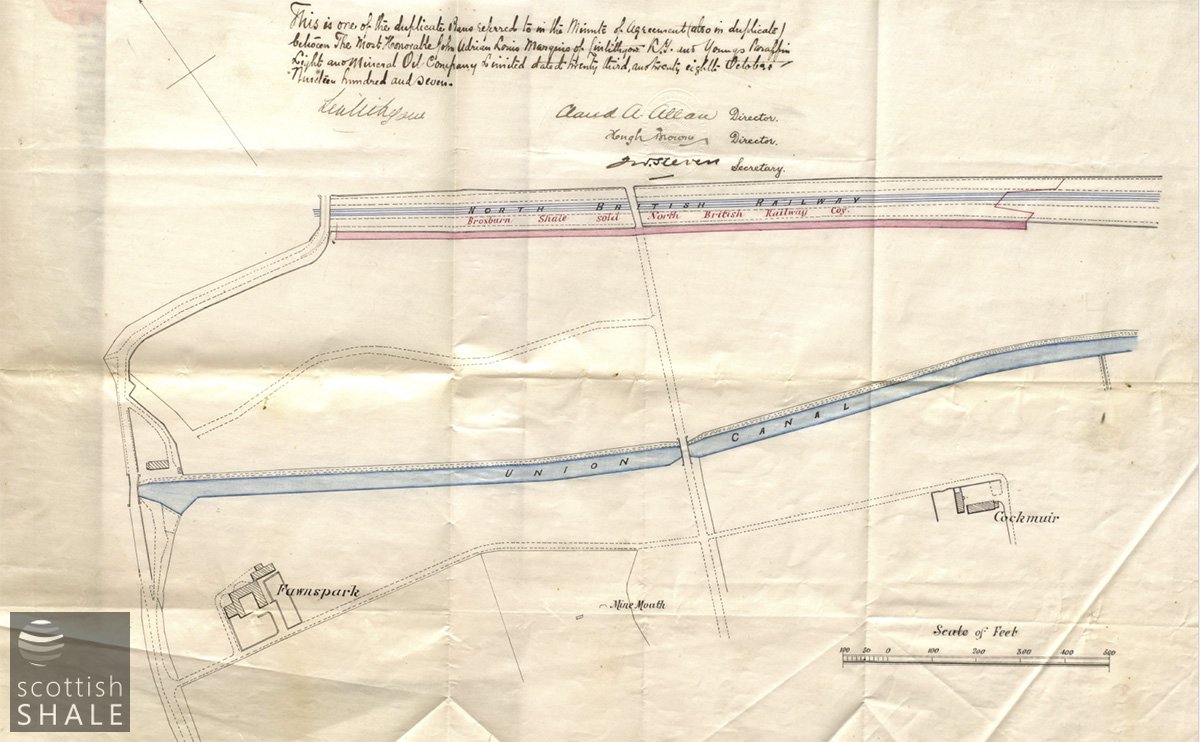 This is one of the duplicate Plans referred to in the Minute of Agreement (also in duplicate)
between The Most Honorable John Adrian Louis Marquis of Linlithgow K.T. and Youngs Paraffin
Light and Mineral Oil Company Limited dated twenty third, and twenty eighth October
Nineteen hundred and seven.
Linlithgow
Claud A. Allan Director.
Hugh Brown Director.
J W Steven Secretary.
NORTH BRITISH RAILWAY
Broxburn Shale sold North British Railway Coy.
UNION CANAL
Cockmuir
Fawnspark
Mine Mouth
Scale of Feet
100 50 0 100 200 300 400 500
scottish
SHALE